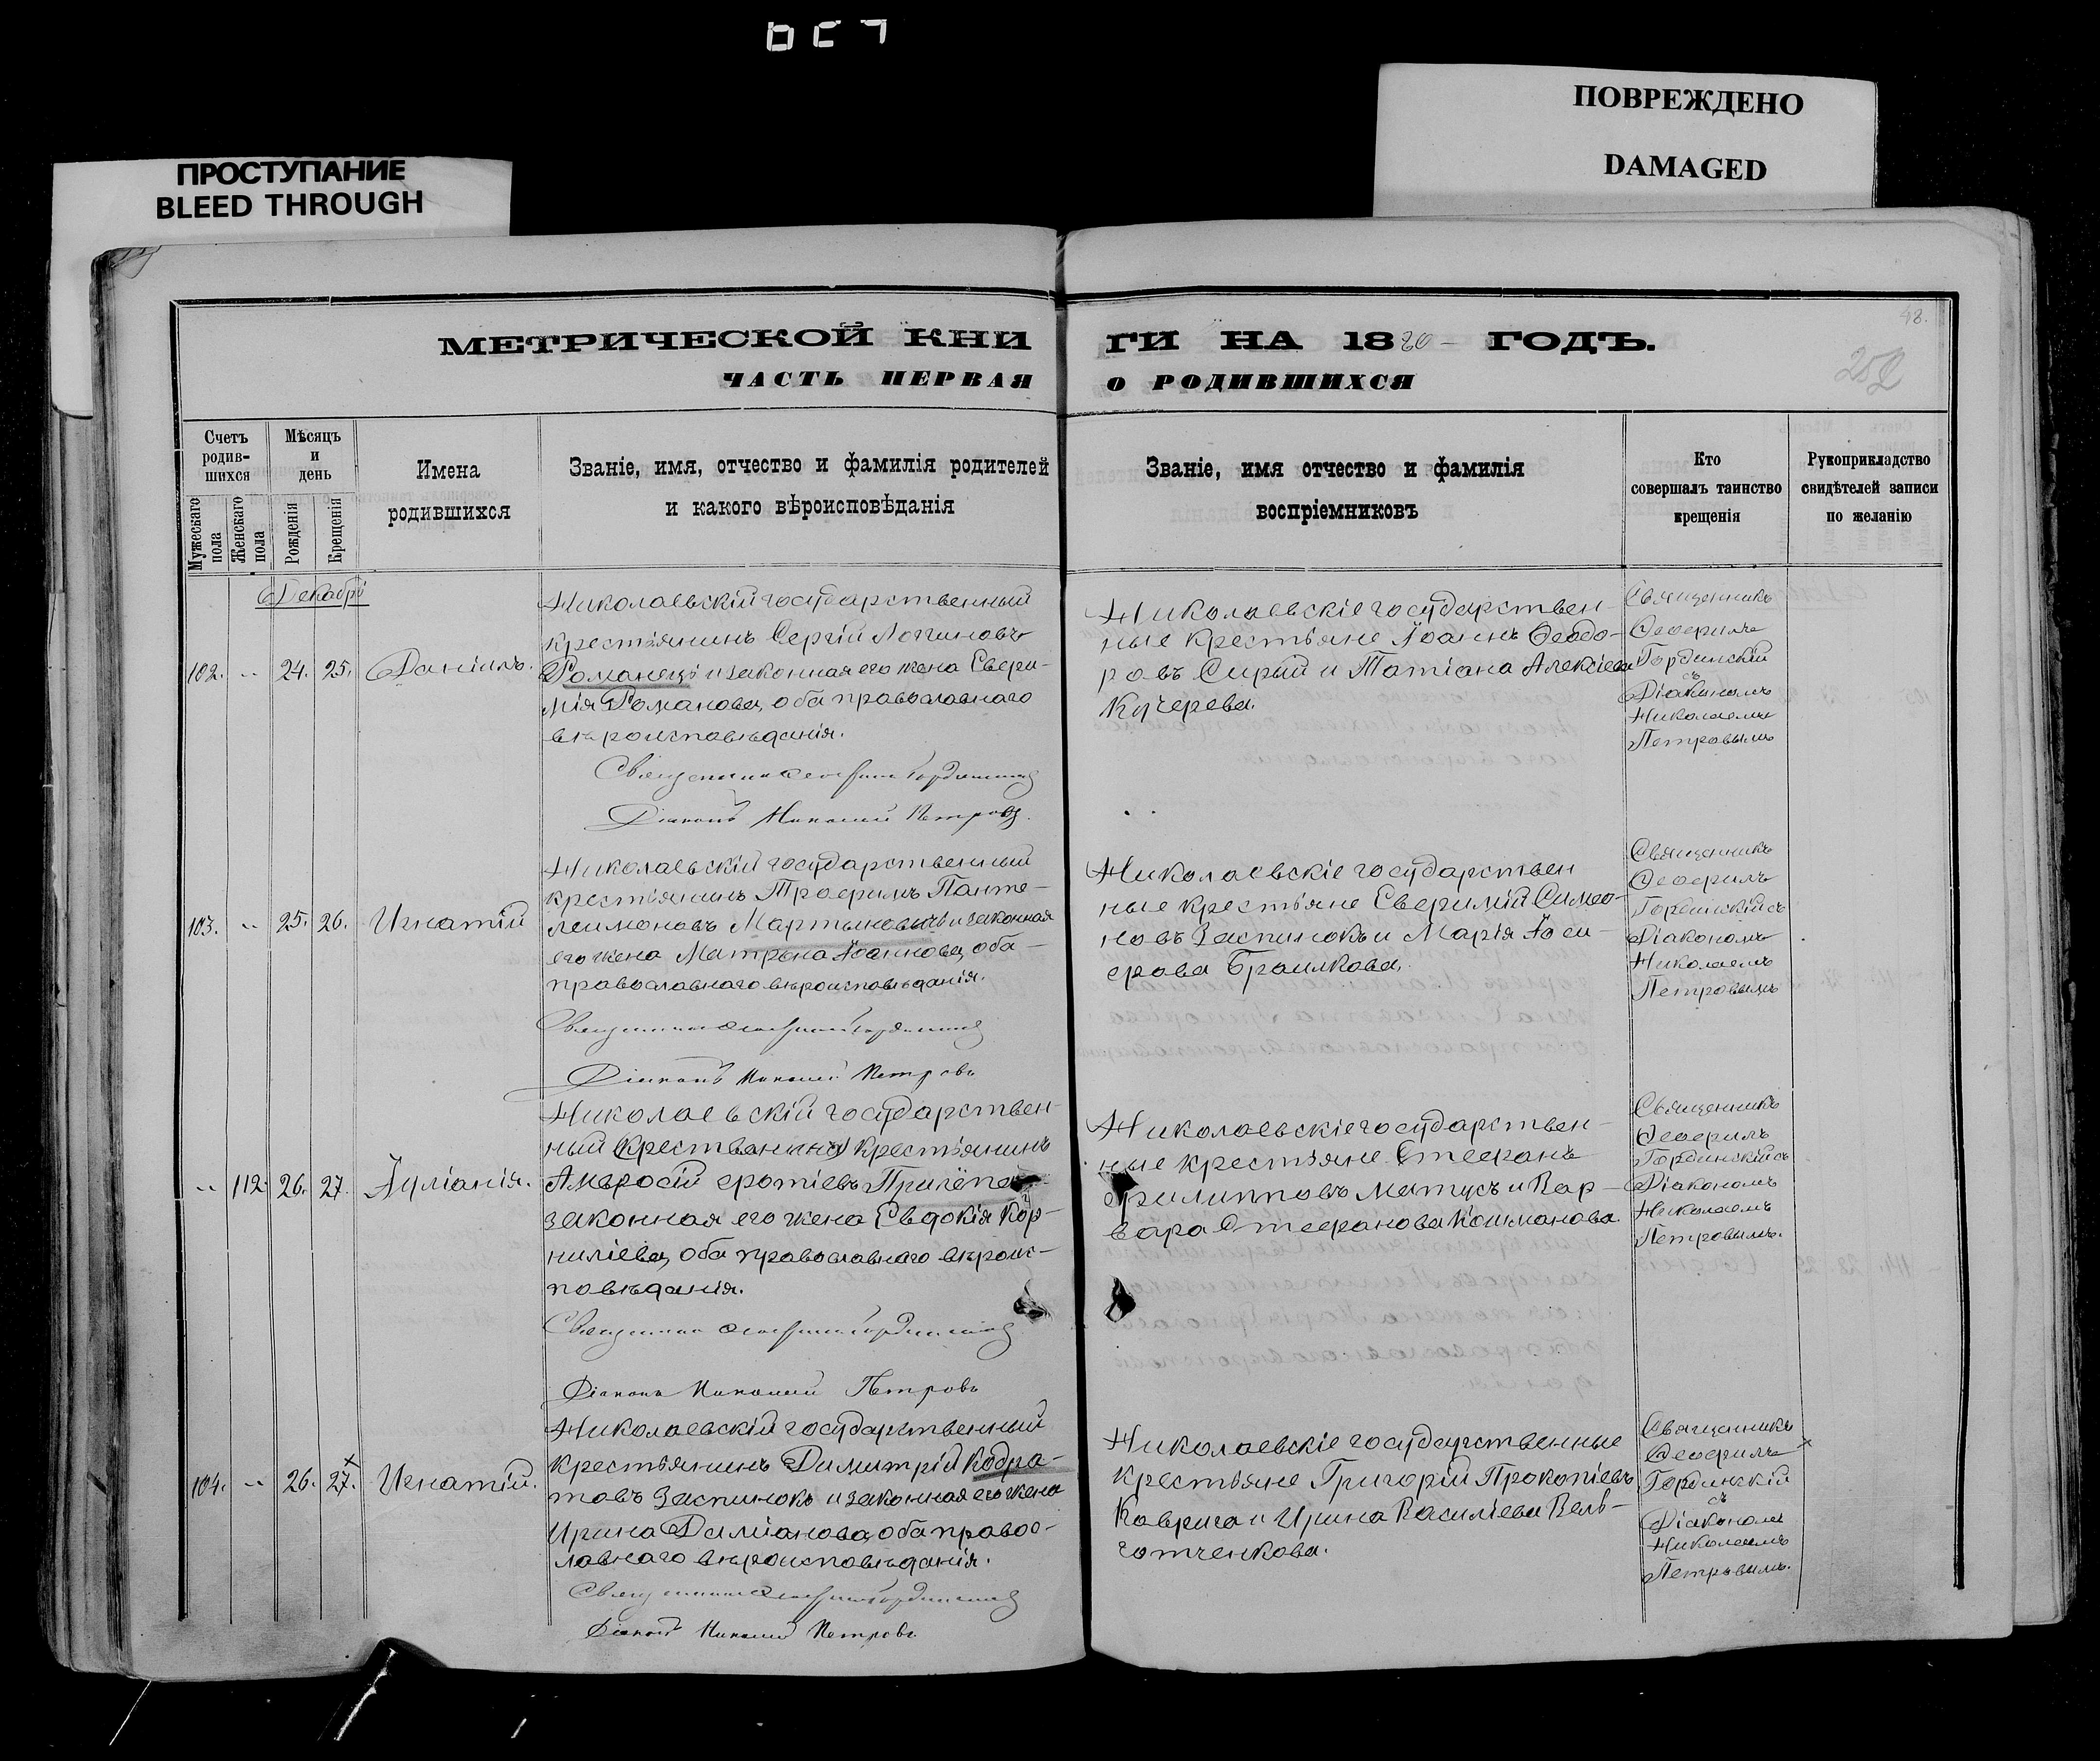 ПОВРЕЖДЕНО
DAMAGED
ПРОСТУПАНИЕ
BLEED THROUGH
48.
МЕТРИЧЕСКОЙ КНИ
ГИ НА 1880 ГОДЪ.
252
ЧАСТЬ ПЕРВАЯ
О РОДИВШИХСЯ
Счетъ родившихся
Мужескаго пола
Женскаго пола
Мѣсяцъ и день
Рожденія
Крещенія
Имена родившихся
Званіе, имя, отчество и фамилія родителей
и какого вѣроисповѣданія
Званіе, имя отчество и фамилія
воспріемниковъ
Кто
совершалъ таинство
крещенія
Рукоприкладство
свидѣтелей записи
по желанію
Декабрь
102. „ 24. 25. Даніилъ.
Николаевскій государственный
крестьянинъ Сергій Логиновъ
Романецъ и законная его жена Евфи-
мія Романова, оба православнаго
вѣроисповѣданія.
Священникъ Феофилъ Гординскій
Діаконъ Николай Петровъ.
Николаевскіе государствен-
ные крестьяне Іоаннъ Феодо-
ровъ Сирый и Татіана Алексіева
Кучерева.
Священникъ
Феофилъ
Гординскій
съ
Діакономъ
Николаемъ
Петровымъ
103. „ 25. 26. Игнатій
Николаевскій государственный
крестьянинъ Трофимъ Панте-
леимоновъ Мартыновичъ и законная
его жена Матрона Іоаннова, оба
православнаго вѣроисповѣданія.
Священникъ Феофилъ Гординскій
Діаконъ Николай Петровъ
Николаевскіе государствен
ные крестьяне Евфимій Симео-
новъ Заспинокъ и Марія Іоси-
фова Браилкова.
Священникъ
Феофилъ
Гординскій съ
Діакономъ
Николаемъ
Петровымъ
„ 112. 26. 27. Іуліанія.
Николаевскій государствен-
ный (крестьянинъ) крестьянинъ
Амвросій Фотіевъ
законная его жена Евдокія Кор-
ниліева, оба православнаго вѣроис-
повѣданія.
Священникъ Феофилъ Гординскій
Діаконъ Николай Петровъ
Николаевскіе государствен-
ные крестьяне Стефанъ
Филипповъ Матусъ и Вар-
вара Стефанова Кошманова.
Священникъ
Феофилъ
Гординскій съ
Діакономъ
Николаемъ
Петровымъ.
104. „ 26. 27. Игнатій.
Николаевскій государственный
крестьянинъ Димитрій Кодра-
товъ Заспинокъ и законная его жена
Ирина Даміанова, оба правос-
лавнаго вѣроисповѣданія.
Священникъ Феофилъ Гординскій
Діаконъ Николай Петровъ.
Николаевскіе государственные
крестьяне Григорій Прокопіевъ
Коврига и Ирина Василіева Вель-
готченкова.
Священникъ
Феофилъ
Гординскій
съ
Діакономъ
Николаемъ
Петровымъ.